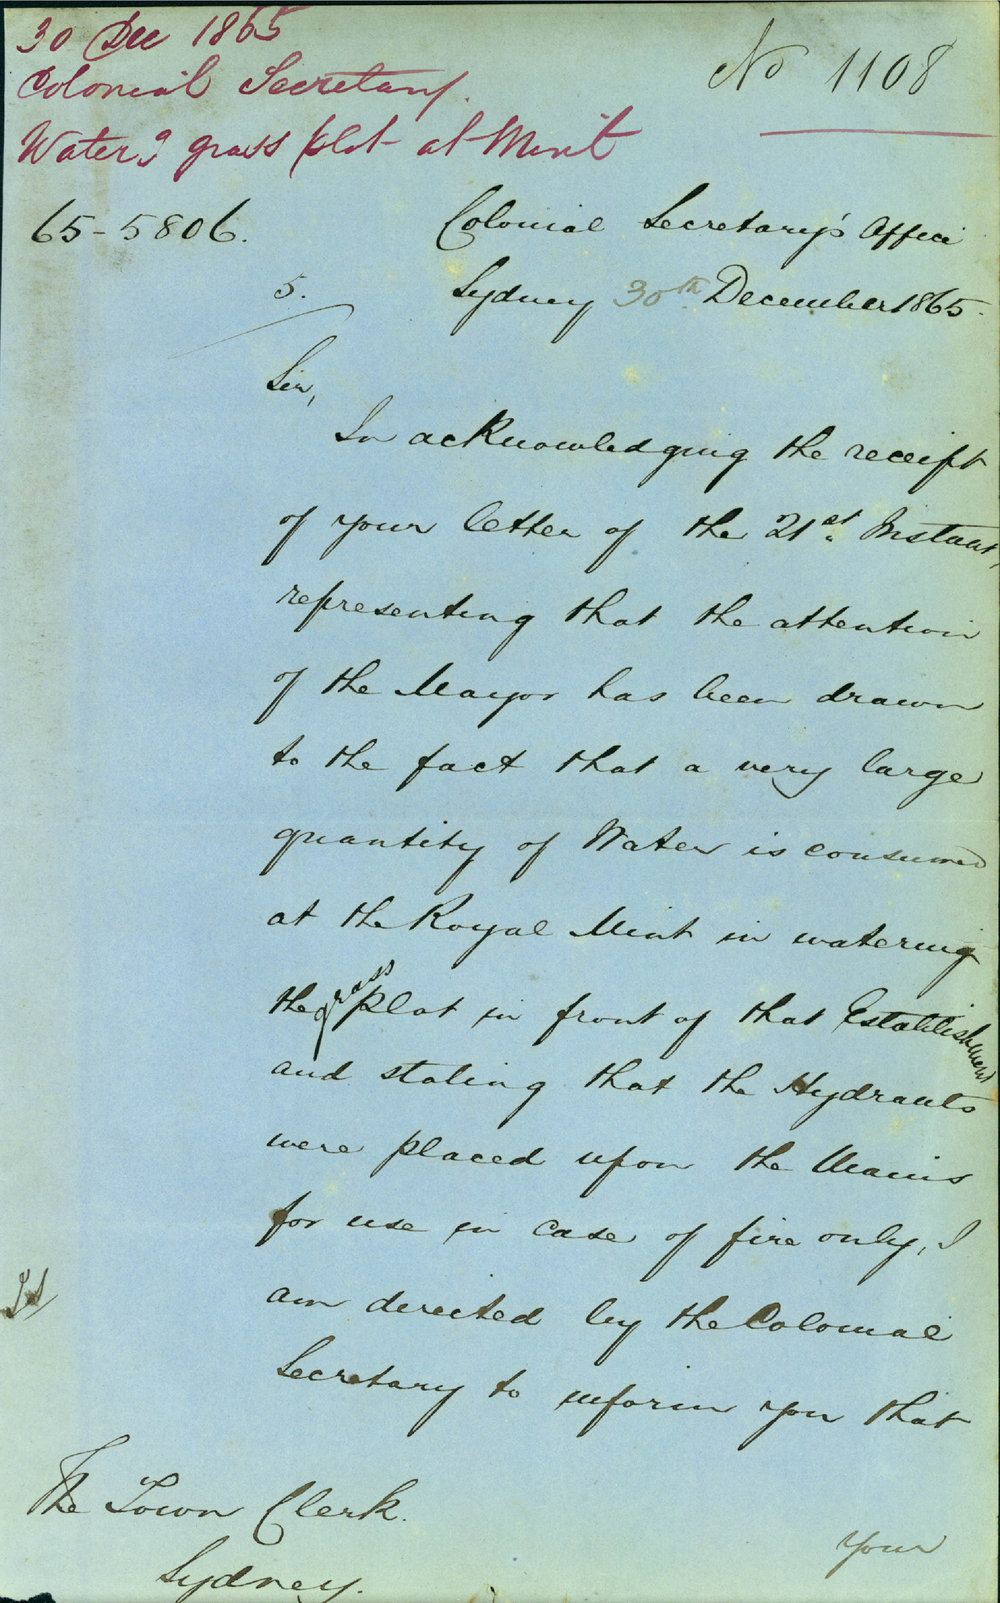 30 Dec 1865
Colonial Secretary.
Waterg grass plot at Mint
No 1108
65-5806.
5.
Colonial Secretary's Office
Sydney 30th December 1865.
Sir,
In acknowledging the receipt
of your letter of the 21st. Instant,
representing that the attention
of the Mayor has been drawn
to the fact that a very large
quantity of Water is consumed
at the Royal Mint in watering
the grass plot in front of that Establishment
and stating that the Hydrants
were placed upon the Mains
for use in case of fire only, I
am directed by the Colonial
Secretary to inform you that
The Town Clerk.
Sydney.
your